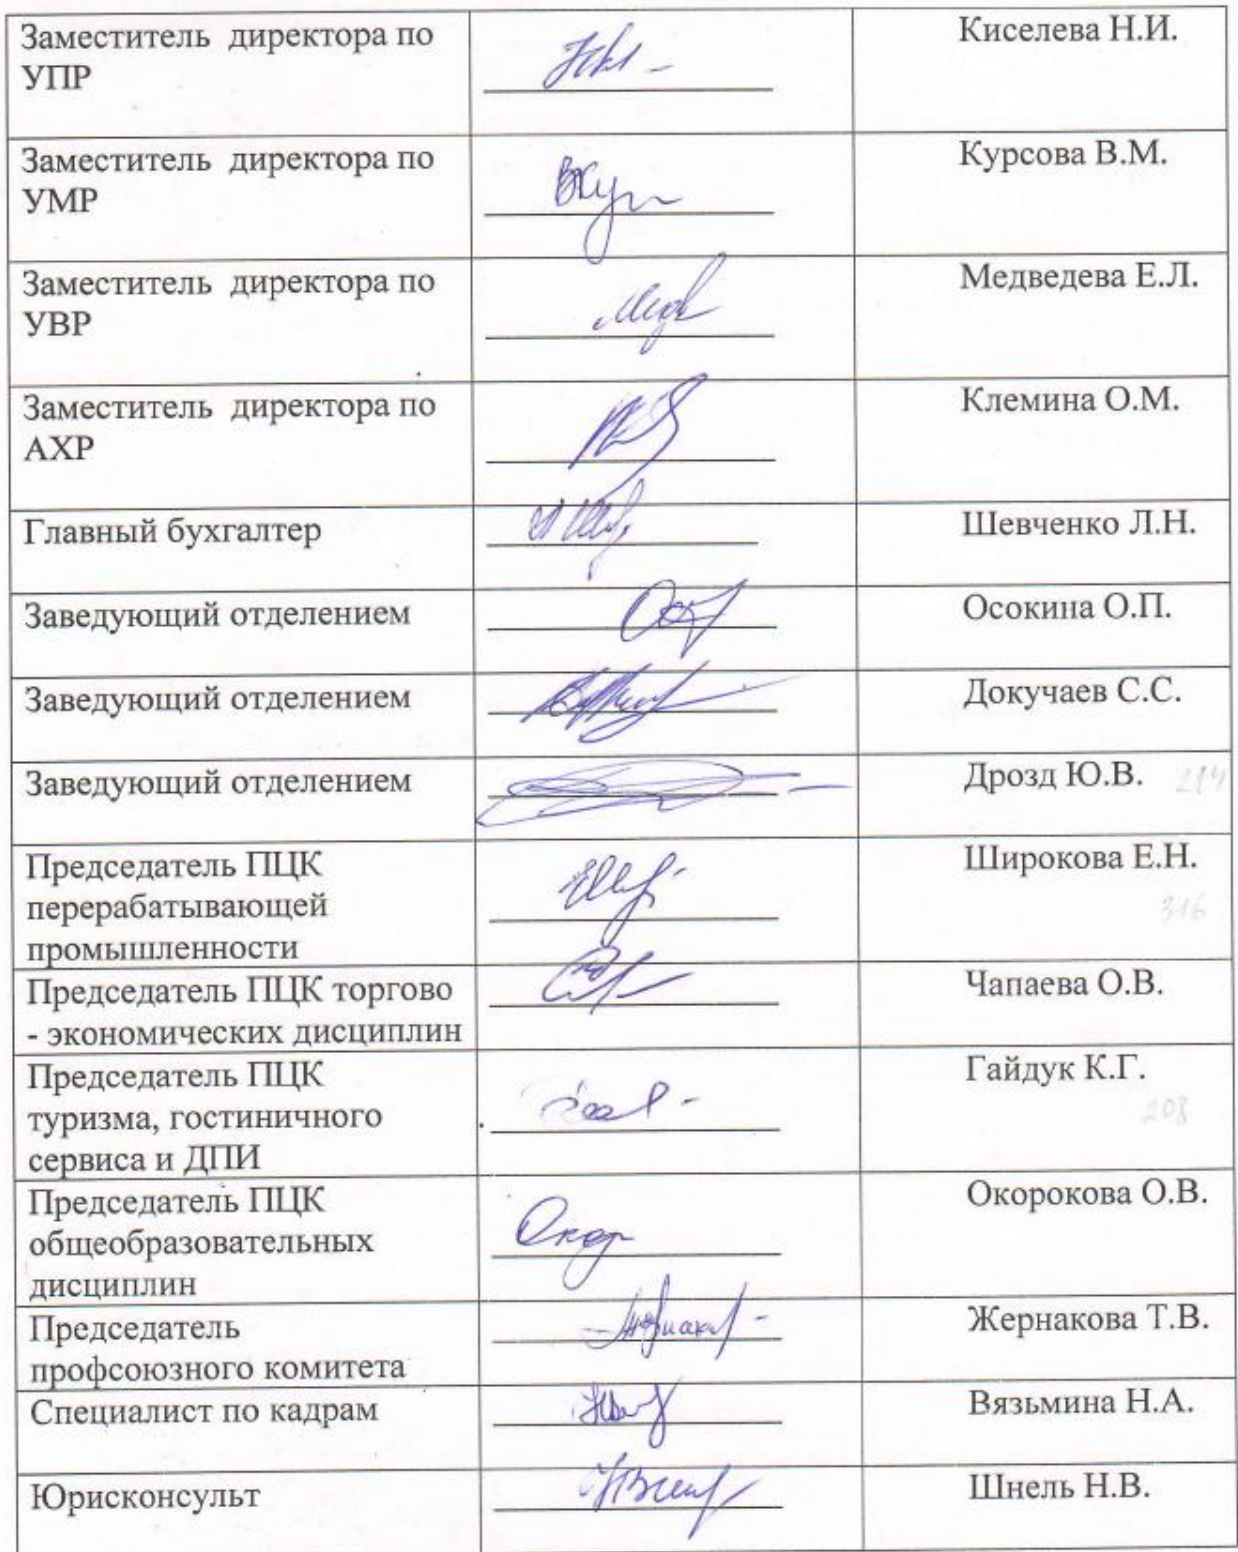 Заместитель директора по
УПР
Киселева Н.И.
Заместитель директора по
УМР
Курсова В.М.
Заместитель директора по
УВР
Медведева Е.Л.
Заместитель директора по
АХР
Клемина О.М.
Главный бухгалтер
Шевченко Л.Н.
Заведующий отделением
Осокина О.П.
Заведующий отделением
Докучаев С.С.
Заведующий отделением
Дрозд Ю.В.
Председатель ПЦК
перерабатывающей
промышленности
Широкова Е.Н.
316
Председатель ПЦК торгово
- экономических дисциплин
Чапаева О.В.
Председатель ПЦК
туризма, гостиничного
сервиса и ДПИ
Гайдук К.Г.
203
Председатель ПЦК
общеобразовательных
дисциплин
Окорокова О.В.
Председатель
профсоюзного комитета
Жернакова Т.В.
Специалист по кадрам
Вязьмина Н.А.
Юрисконсульт
Шнель Н.В.